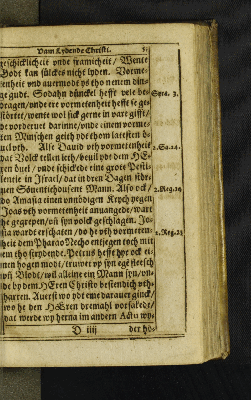 Vam Lydende Christi. 5
geschicklicheit vnde framicheit / Wente
Godt kan sülckes nicht lyden. Vorme-
tenheit vnd auermodt ys tho nenem din-
ge gudt. Sodahn dünckel hefft vele be-
dragen / vnde ere vormetenheit hefft se ge-
störtet / wente wol sick gerne in vare gifft /
de vorderuet darinne / vnde einem vorme-
ten Minschen geit ydt thom latesten ö-
uel vth. Alse Dauid vth vormetenheit
dat Volck tellen leth / beuil ydt dem HE-
ren öuel / vnde schickede eine grote Pesti-
lentie in Israel / dat in dren Dagen störuen
Söuentichdusent Mann. Also ock /
do Amasia einen vnnödigen Krych yegen
Joas vth vormetenheit anuangede / wart
he gegrepen / vñ syn volck geschlagen. Jo-
sia wardt erschaten / do he vth vormeten-
heit dem Pharao Necho entjegen toch mit
em tho strydende. Petrus hefft hyr ock ei-
nen hogen modt / truwet vp syn egē fleesch
vñ Blodt / wil alleine ein Mann syn / vn-
de by dem HEren Christo bestendich vth-
harren. Auerst wo ydt eme darauer ginck /
wo he den HEren dremahl vorsakede /
dat werde wy herna im andern Actu wy-
Syra. 3.
2. Sa. 24.
2. Reg. 14
2. Reg. 23
D iiij der ho-